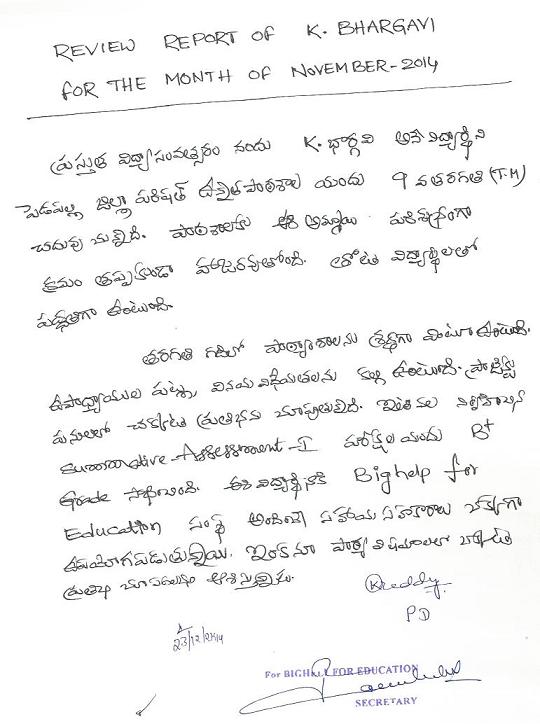 REVIEW REPORT OF K. BHARGAVI
FOR THE MONTH OF NOVEMBER-2014
ప్రస్తుత విద్యాసంవత్సరం నందు K. భార్గవి అనే విద్యార్థిని
పెదపల్లి జిల్లా పరిషత్ ఉన్నత పాఠశాల యందు 9 వ తరగతి (T.M)
చదువు చున్నది. పాఠశాలకు ఈ అమ్మాయి పరిశుభ్రంగా
క్రమం తప్పకుండా హాజరవుతోంది. తోటి విద్యార్థులతో
పద్ధతిగా ఉంటుంది.
తరగతి గదిలో పాఠ్యాంశాలను శ్రద్ధగా వింటూ ఉంటుంది.
ఉపాధ్యాయుల పట్ల వినయ విధేయతలను కల్గి ఉంటుంది. ప్రాజెక్టు
పనులలో చక్కటి ప్రతిభను చూపుతున్నది. ఇటీవల నిర్వహించిన
Summative-Assessment-I పరీక్షల యందు B+
Grade సాధించింది. ఈ విద్యార్థినికి Bighelp for
Education సంస్థ అందించే సహాయ సహకారాలు బాగా
ఉపయోగపడుతున్నాయి. ఇంకనూ పాఠ్య విషయాలలో
ప్రతిభ చూపగలదని ఆశిస్తున్నాను.
KReddy
PD
23/12/2014
For BIGHELP FOR EDUCATION
SECRETARY